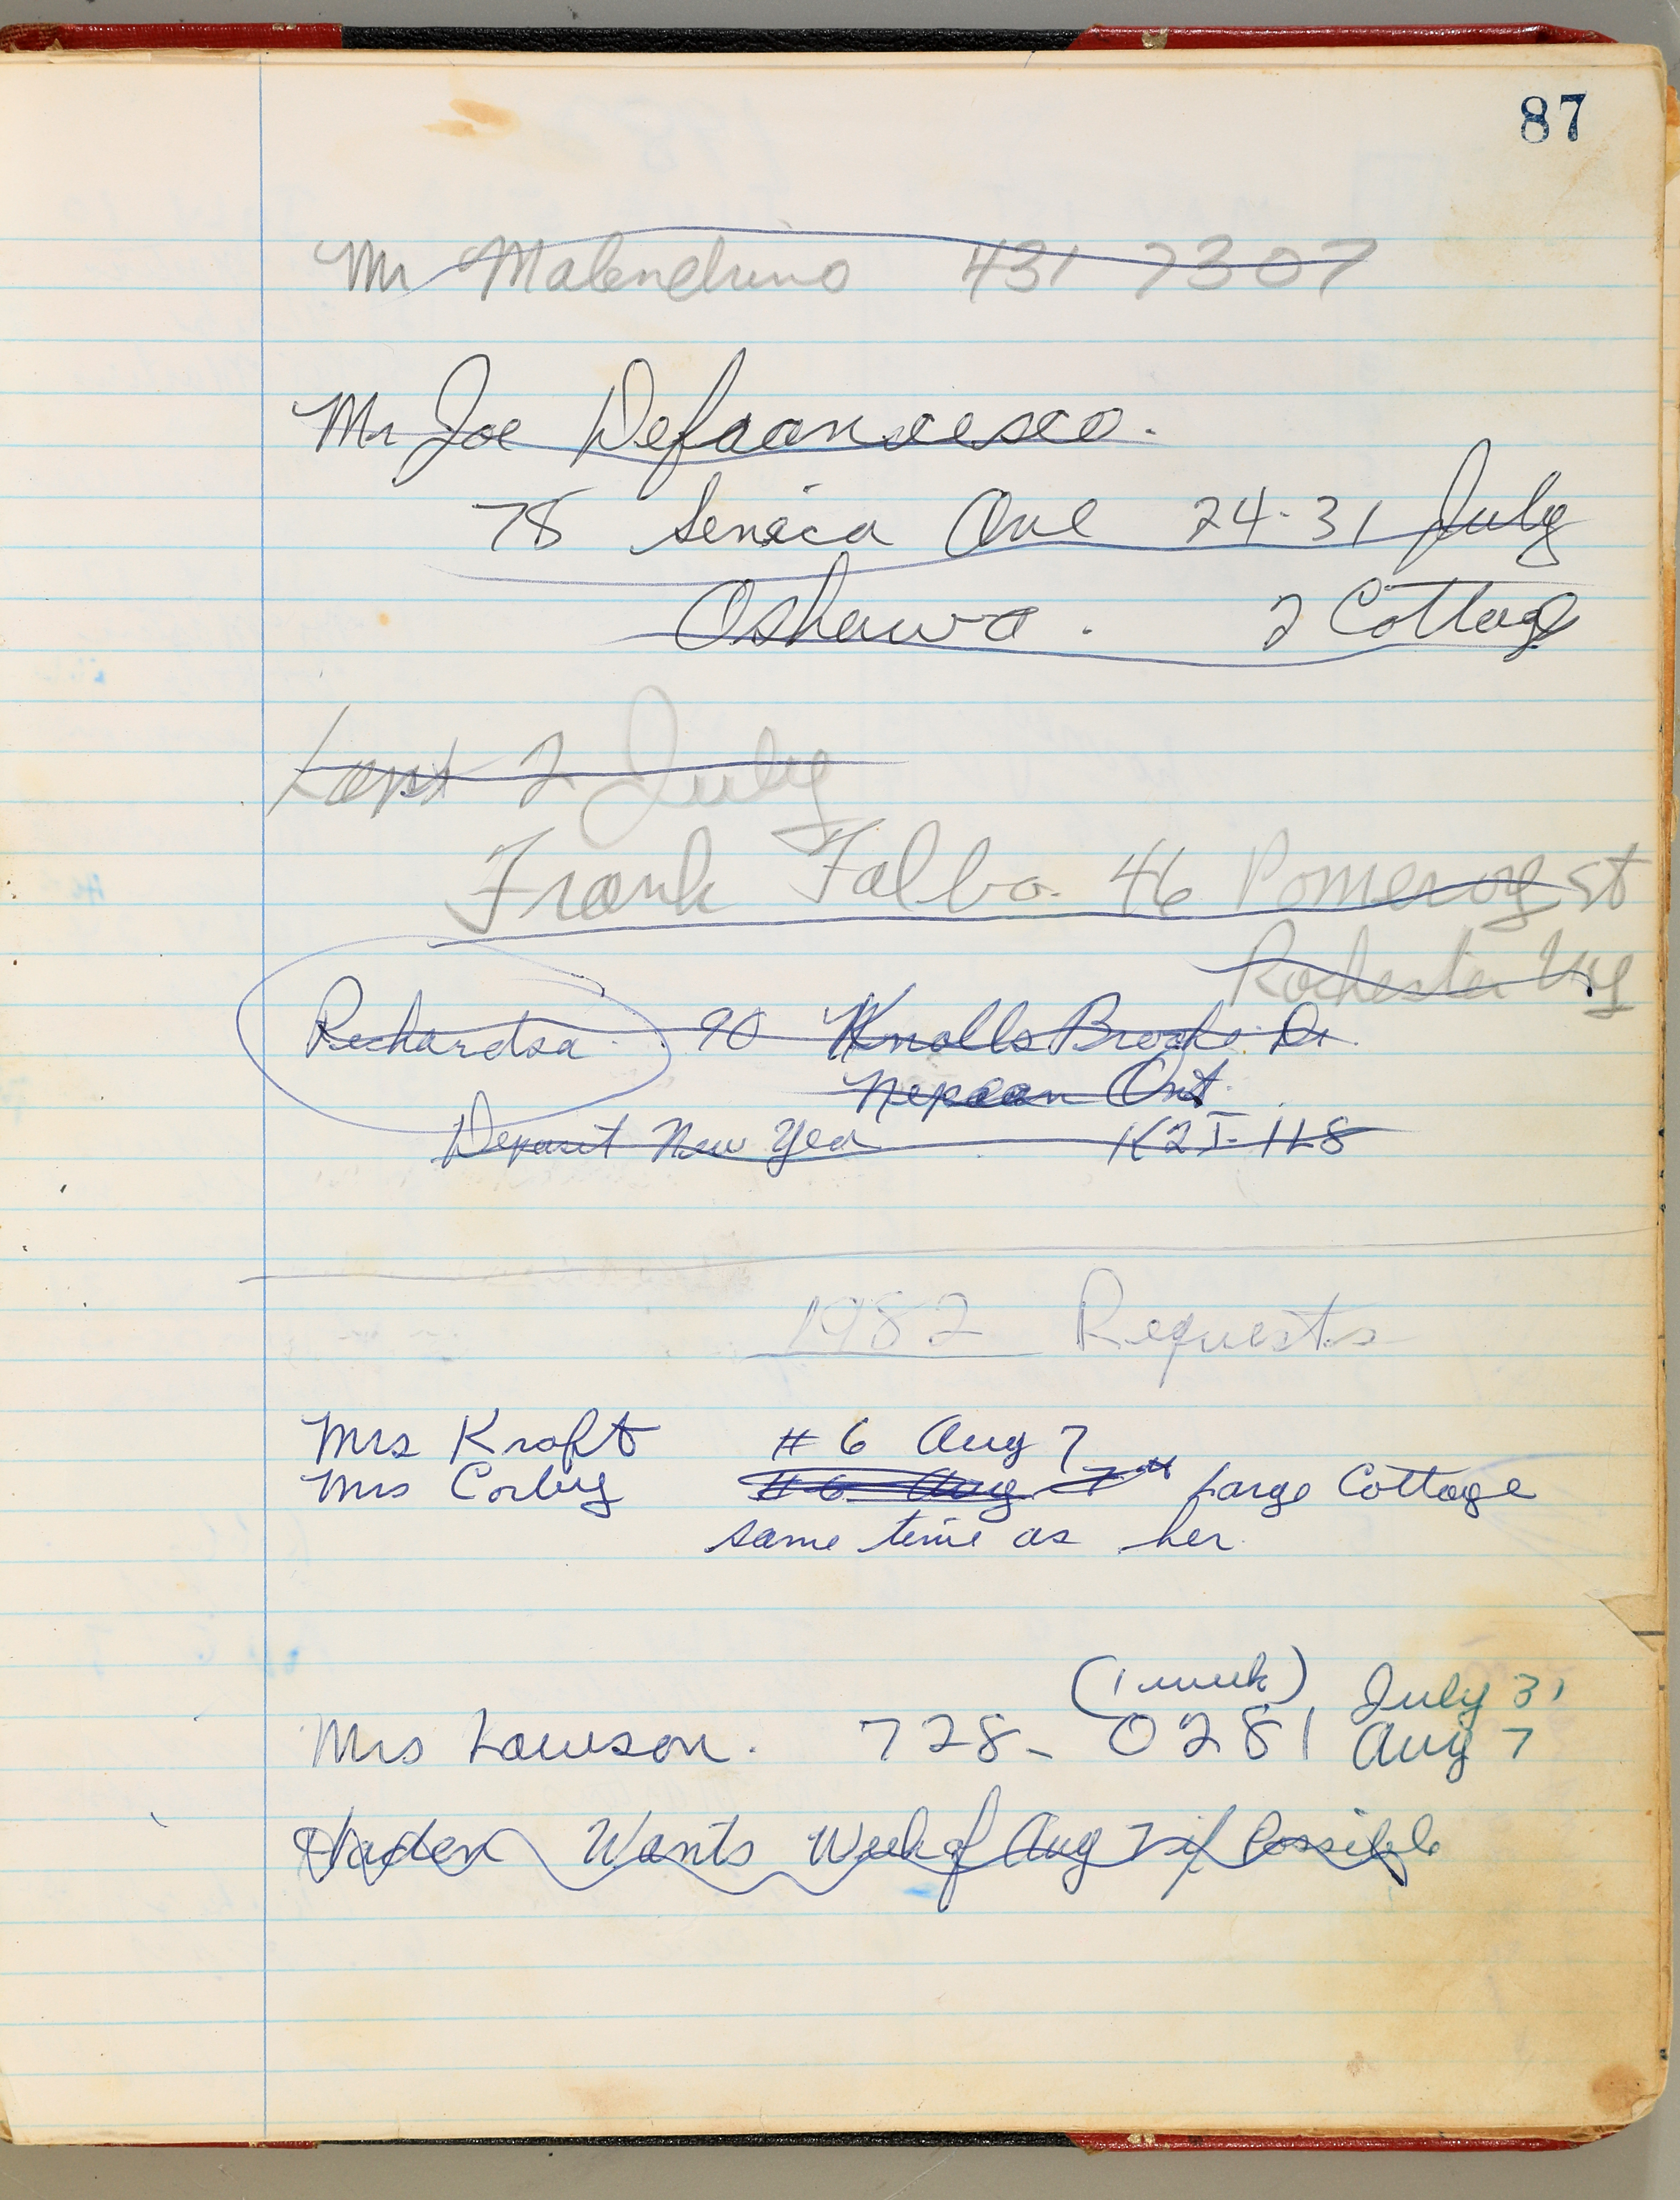 87
Mr Malendrino 431 7307
Mr Joe Defrancesco.
78 Seneca Ave 24-31 July
Oshawa. 2 Cottage
Last 2 July
Frank Falbo. 46 Pomeroy st
Rochester NY
Richardson 90 Knolls Brook Dr
Nepean Ont.
Deposit New Year K2J-1L8
1982 Requests
Mrs Kraft #6 Aug 7
Mrs Corby #6 Aug 7th Large Cottage
same time as her
(1 week) July 31
Mrs Lawson. 728-0281 Aug 7
Haden Wants Week of Aug 7 if Possible